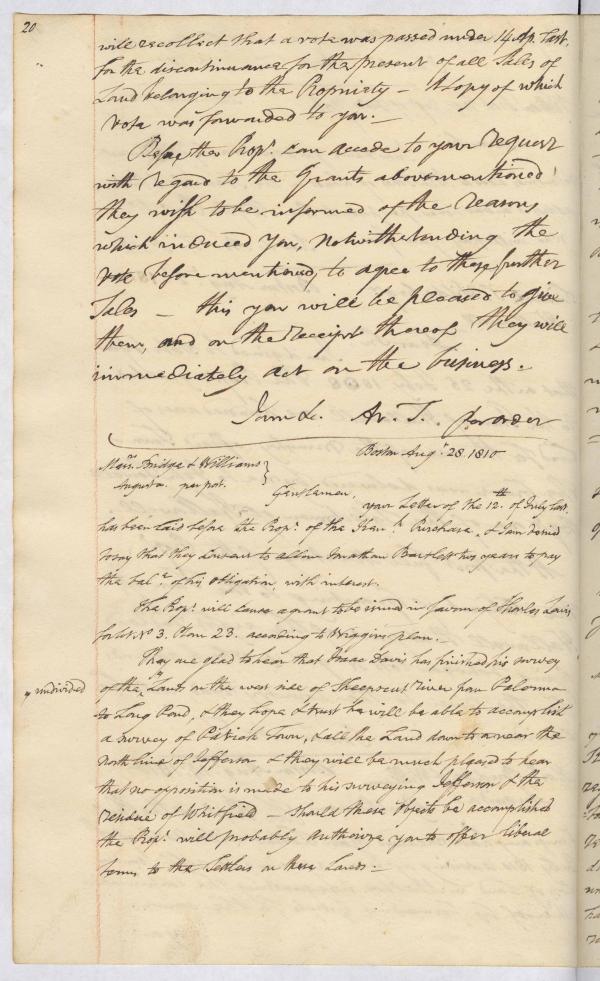 20
will recollect that a vote was passed under 14 Ap. last,
for the discontinuance for the present of all Sales of
Land belonging to the Propriety — A Copy of which
vote was forwarded to you. —
Before the Prop.s can accede to your request
with regard to the Grants abovementioned
they wish to be informed of the reasons
which induced you, notwithstanding the
vote before mentioned, to agree to these further
Sales — this you will be pleased to give
them, and on the receipt thereof they will
immediately act on the business. —
I am &c. Ar. T. per order
Boston Aug.t 28. 1810
Mess.rs Bridge & Williams
Augusta per post.
Gentlemen,
your Letter of the 12.th of July last.
has been laid before the Prop.s of the Ken.k Purchase, & I am desired
to say that they consent to allow Jonathan Bartlett two years to pay
the bal.ce of his obligation, with interest.
The Prop.s will cause a grant to be issued in favour of Charles Lewis
for Lot No 3. Plan 23. according to Wiggins plan. —
They are glad to hear that Isaac Davis has finished his survey
" undivided
of the " Lands on the west side of Sheepscut river from Palermo
to Long Pond, & they hope & trust he will be able to accomplish
a survey of Patrick Town, & all the Land down to a near the
north line of Jefferson & they will be much pleased to hear
that no opposition is made to his surveying Jefferson & the
residue of Whitfield — should these objects be accomplished
the Prop.s will probably authorize you to offer liberal
terms to the Settlers on these Lands. —